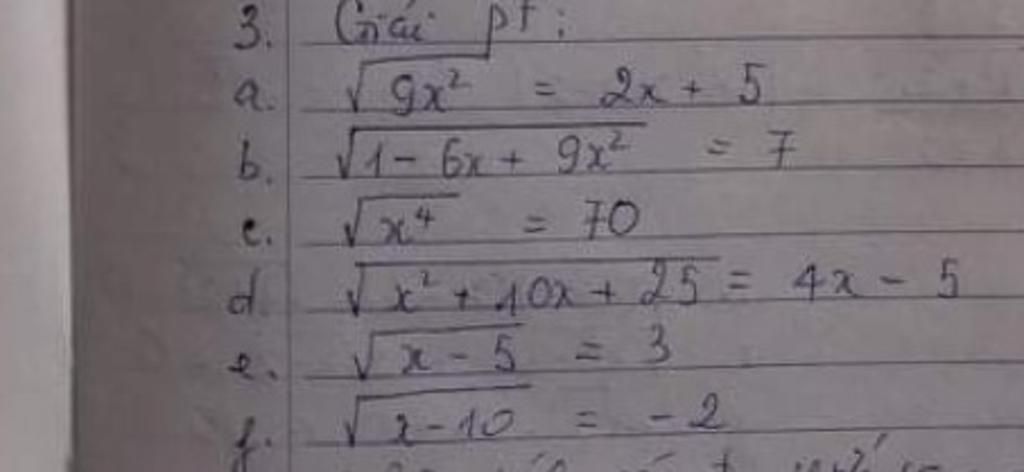 3. Giải pt:
a. √9x² = 2x + 5
b. √1 - 6x + 9x² = 7
c. √x⁴ = 70
d √x² + 10x + 25 = 4x - 5
e. √x - 5 = 3
f. √x - 10 = - 2